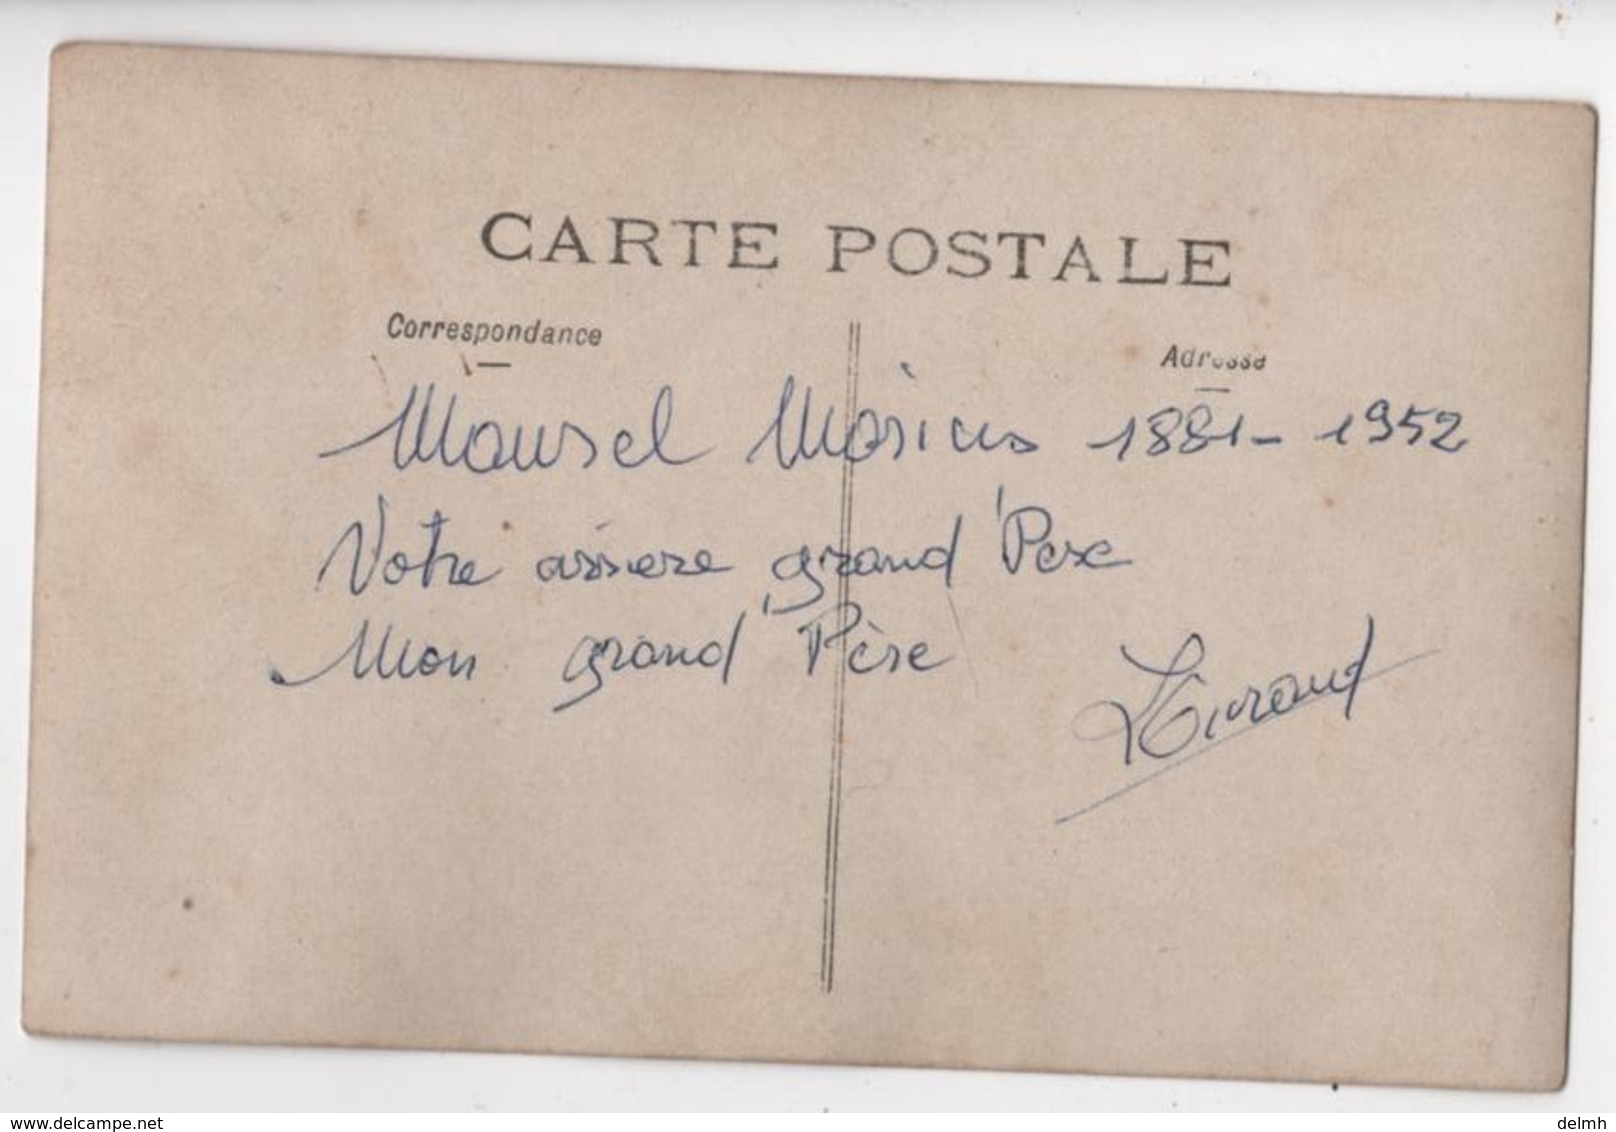 CARTE POSTALE
Correspondance
Adresse
Maurel Marius 1881 - 1952
Votre arriere grand Pere
Mon grand Père
www.delcampe.net
delmh